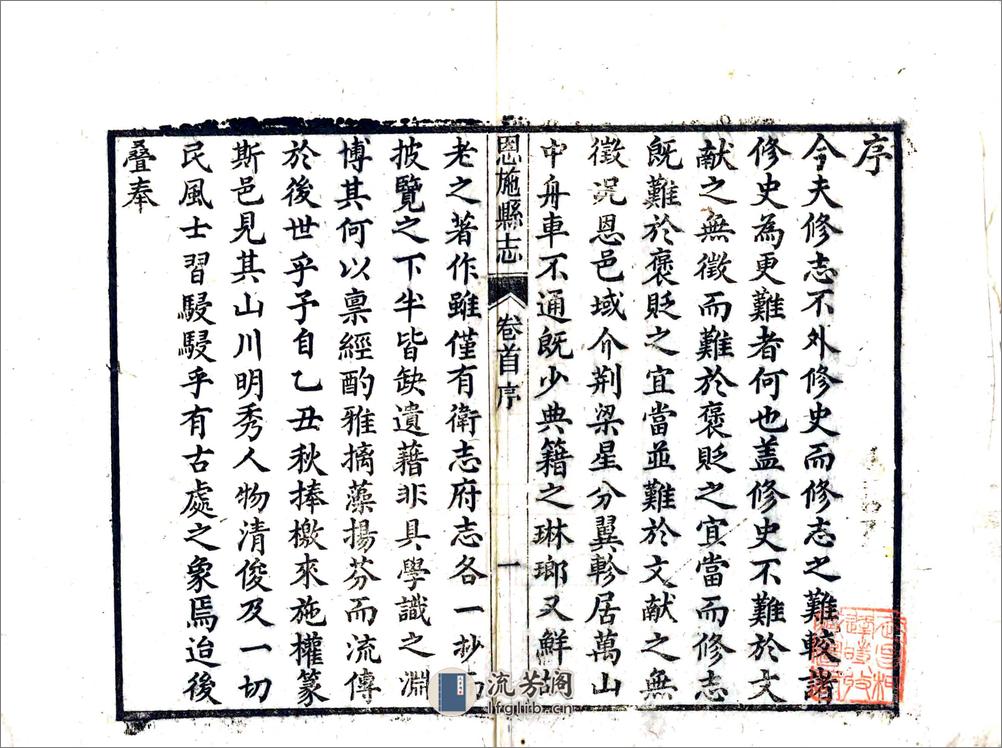 序
今夫修志不外修史而修志之難較諸
修史為更難者何也盖修史不難於文
献之無徵而難於褒貶之宜當而修志
旣難於褒貶之宜當並難於文献之無
徵况恩邑域介荆梁星分翼軫居萬山
中舟車不通旣少典籍之琳瑯又鮮
恩施縣志
卷首序
一
老之著作雖僅有衛志府志各一抄
披覽之下半皆缺遺藉非具學識之淵
博其何以禀經酌雅摛藻揚芬而流傳
於後世乎予自乙丑秋捧檄來施權篆
斯邑見其山川明秀人物清俊及一切
民風士習駸駸乎有古處之象焉迨後
叠奉
流芳阁
lfglib.cn